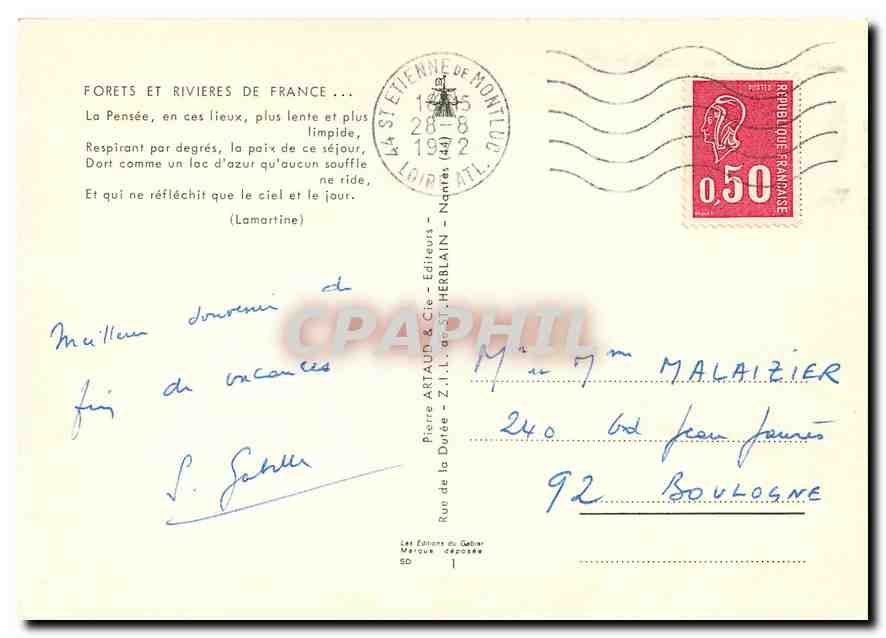 FORETS ET RIVIERES DE FRANCE ...
La Pensée, en ces lieux, plus lente et plus
limpide,
Respirant par degrés, la paix de ce séjour,
Dort comme un lac d'azur qu'aucun souffle
ne ride,
Et qui ne réfléchit que le ciel et le jour.
(Lamartine)
44 ST ETIENNE DE MONTLUC
28-8
1972
LOIRE ATL.
POSTES
REPUBLIQUE FRANÇAISE
0,50
Meilleur souvenir de
fin de vacances
Pierre ARTAUD & Cie - Editeurs -
Rue de la Dutée - Z.I.L. de ST. HERBLAIN - Nantes (44)
CPAPHIL
Mr et Mme MALAIZIER
240 bd Jean Jaurès
92 BOULOGNE
Les Editions du Gabier
Marque déposée
SD 1